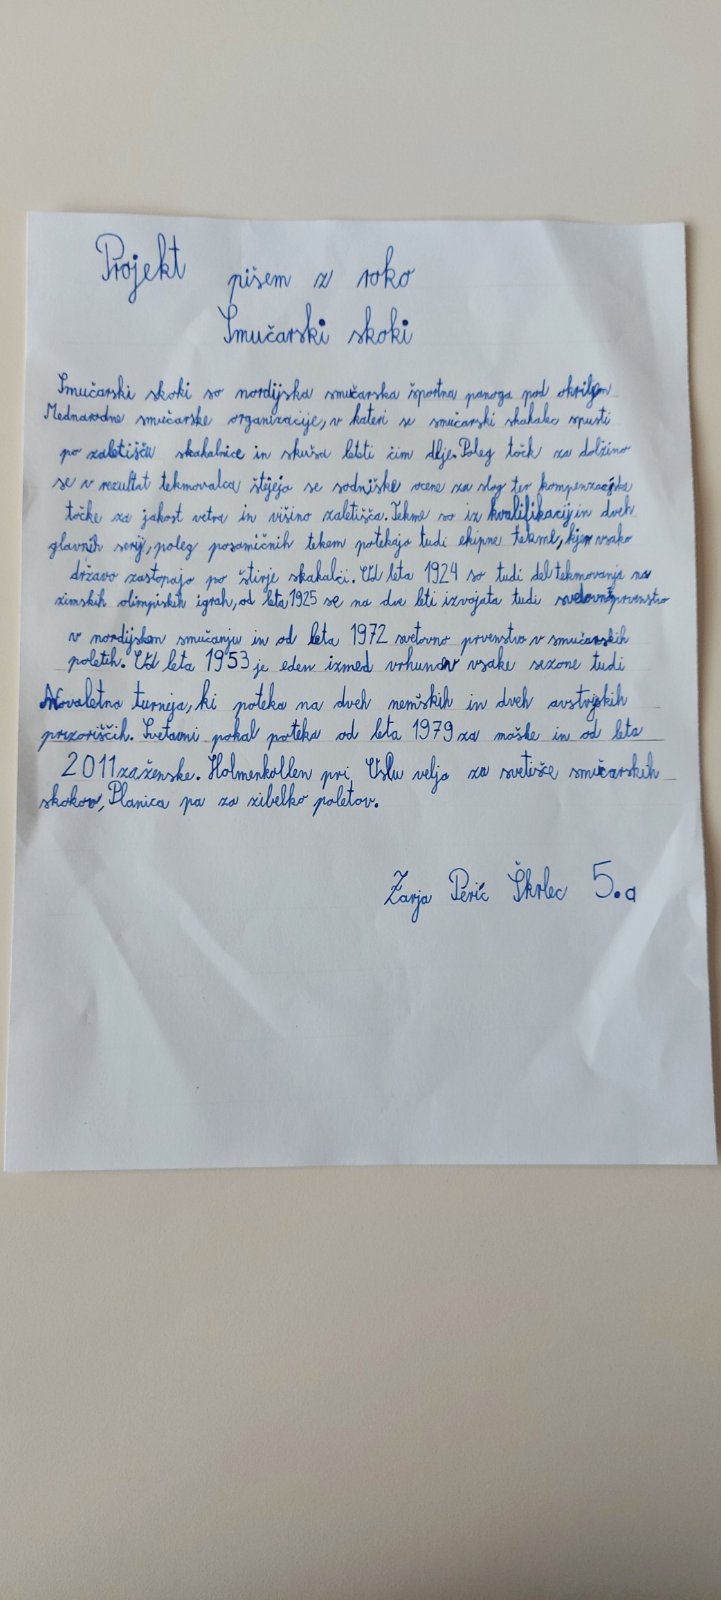 Projekt pišem z roko
Smučarski skoki
Smučarski skoki so nordijska smučarska športna panoga pod okriljem
Mednarodne smučarske organizacije, v kateri se smučarski skakalec spusti
po zaletišču skakalnice in skuša leteti čim dlje. Poleg točk za dolžino
se v rezultat tekmovalca štejejo še sodniške ocene za slog ter kompenzacijske
točke za jakost vetra in višino zaletišča. Tekme so iz kvalifikacij in dveh
glavnih serij, poleg posamičnih tekem potekajo tudi ekipne tekme, kjer vsako
državo zastopajo po štirje skakalci. Od leta 1924 so tudi del tekmovanja na
zimskih olimpiskih igrah, od leta 1925 se na dve leti izvojata tudi svetovno prvenstvo
v nordijskem smučanju in od leta 1972 svetovno prvenstvo v smučarskih
poletih. Od leta 1953 je eden izmed vrhuncev vsake sezone tudi
Novoletna turneja, ki poteka na dveh nemških in dveh avstrijskih
prizoriščih. Svetovni pokal poteka od leta 1979 za moške in od leta
2011 za ženske. Holmenkollen pri Oslu velja za svetišče smučarskih
skokov, Planica pa za zibelko poletov.
Zarja Perić Škrlec 5.a